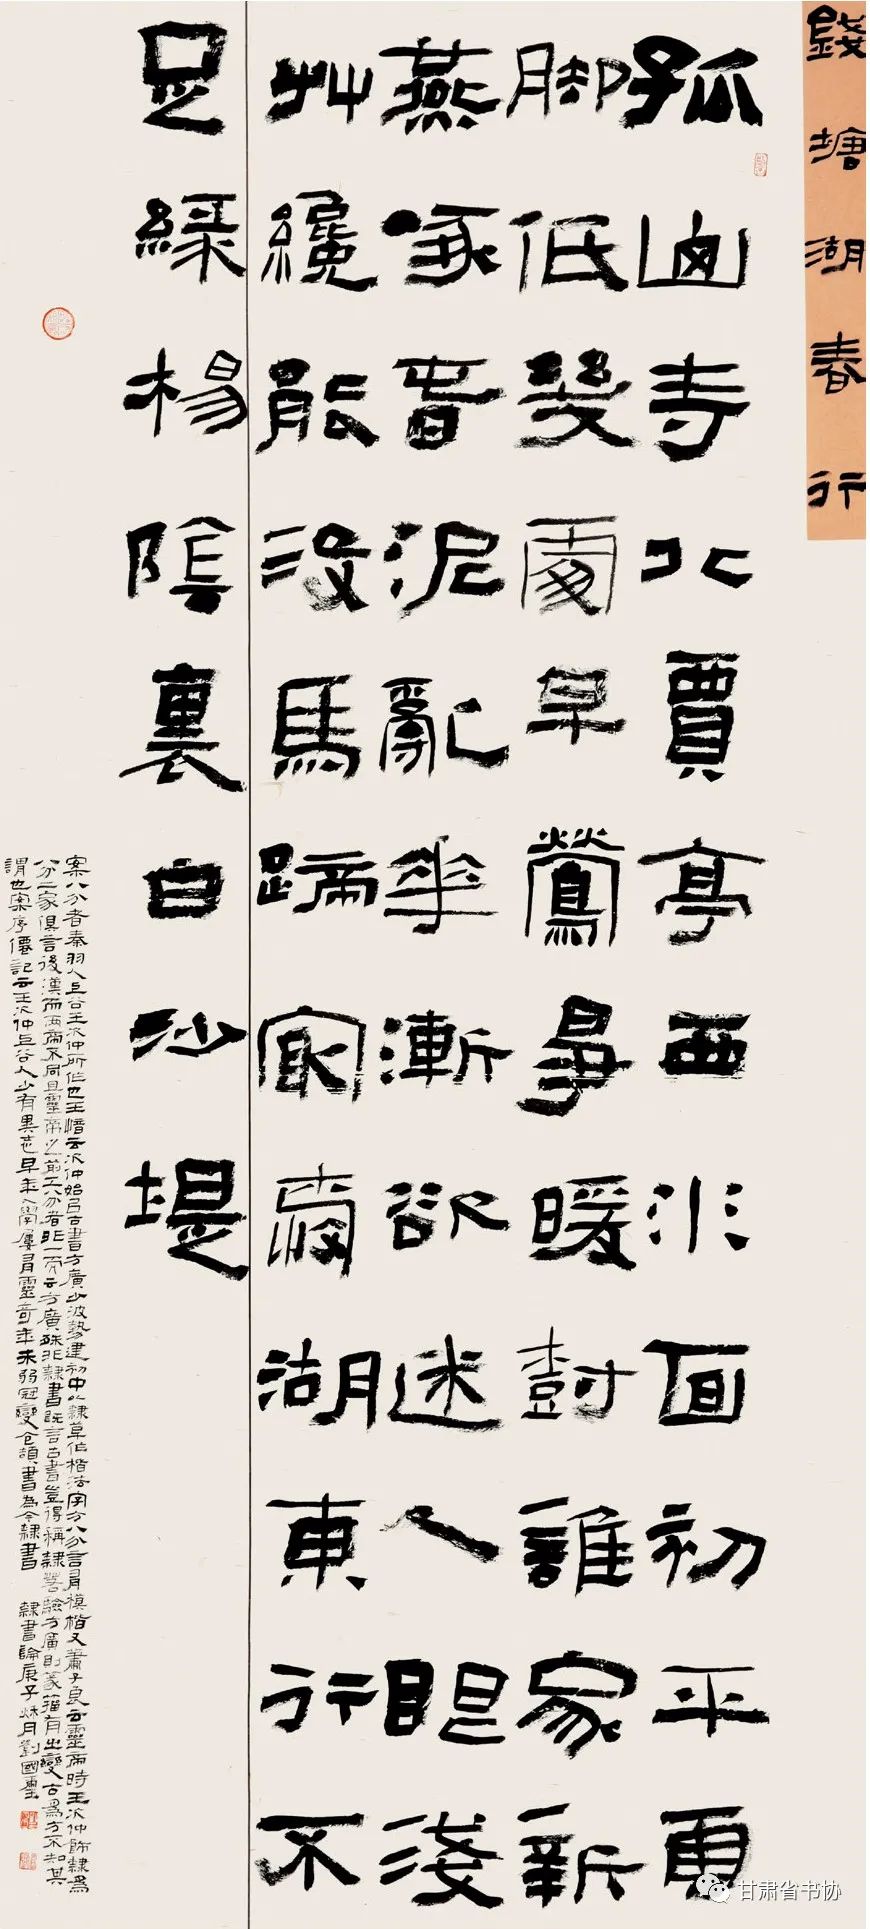 錢塘湖春行
孤山寺北賈亭西水面初平雲
脚低幾處早鶯爭暖樹誰家新
燕啄春泥亂華漸欲迷人眼淺
艸纔能沒馬蹄最愛湖東行不
足綠楊陰裏白沙堤
案八分者秦羽人上谷王次仲所作也王愔云次仲始以古書方廣少波勢建初中以隸草作楷法字方八分言有模楷又蕭子良云靈帝時王次仲飾隸為
八分二家俱言後漢而兩帝不同且靈帝之前工八分者非一而云方廣殊非隸書既言古書豈得稱隸若驗方廣則篆籀有出變古為方不知其
謂也案序僊記云王次仲上谷人少有異志早年入學屢有靈奇年未弱冠變倉頡書為今隸書 隸書論庚子秋月劉國璽
甘肃省书协